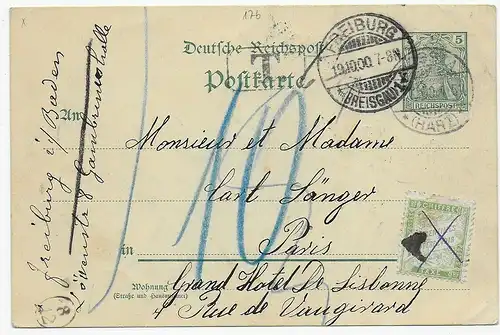 17b
Deutsche Reichspost
Postkarte
T
FREIBURG
19.10.00. 7-8N.
(BREISGAU) 1
5
REICHSPOST
(HARZ)
An
Monsieur et Madame
Carl Sänger
in Paris
Wohnung
(Straße und Hausnummer)
Grand Hotel De Lisbonne
4 Rue de Vaugirard
Freiburg i/Baden
Löwenstr 8 Gambrinushalle
10
CHIFFRE
TAXE